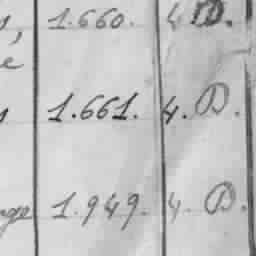 1.660. 4. D.
e
1.661. 4. D.
1.949. 4. D.